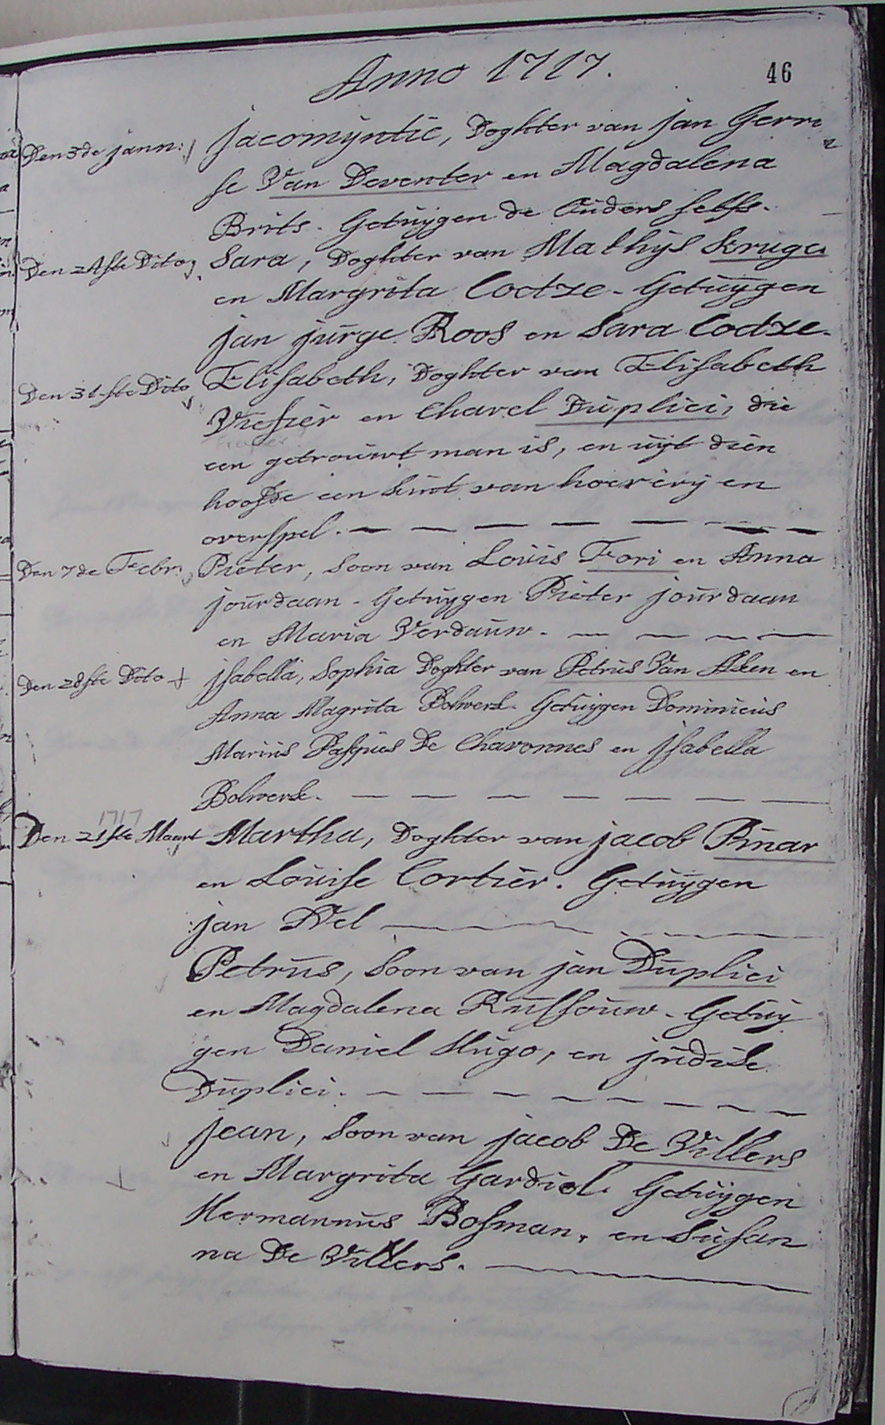 Anno 1717.
46
Den 3de jann:
jacomyntie, Doghter van jan Gerri
se Van Deventer en Magdalena
Brits. Getuygen de Ouders selfs.
Den 24ste Dito
Sara, Doghter van Mathijs Kruger
en Margrita Codtze. Getuygen
jan jurge Roos en Sara Codtze.
Den 31ste Dito
Elisabeth, Doghter van Elisabeth
Viesier en Charel Duplici, die
een getrouwt man is, en uijt dien
hoofde een kint van hoerery en
overspel.
Den 7de Febr:
Pieter, Soon van Louis Fori en Anna
jourdaan. Getuygen Pieter jourdaan
en Maria Verdauw.
Den 28ste Dito +
jsabella, Sophia Doghter van Petrus Van Aken en
Anna Magrita Bolwerk. Getuygen Dominicus
Marius Pasques De Chavonnes en jsabella
Bolwerk.
1717
Den 21ste Maart
Martha, Doghter van jacob Pinar
en Louise Cortier. Getuygen
jan Nel
Petrus, Soon van jan Duplici
en Magdalena Russouw. Getuy
gen Daniel Hugo, en judik
Duplici.
jean, Soon van jacob De Villers
en Margrita Gardiol. Getuygen
Hermannus Bosman, en Susan
na De Villers.